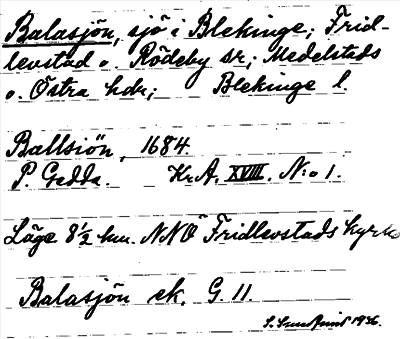 Balasjön, sjö i Blekinge; Frid-
levstad o. Rödeby sr; Medelstads
o. Östra hdr; Blekinge l.
Ballsiön, 1684.
P. Gedda. Kr.A. XVIII. N:o 1.
Läge 8½ km. NNÖ Fridlevstads kyrka
Balasjön ek. G. 11.
1936.